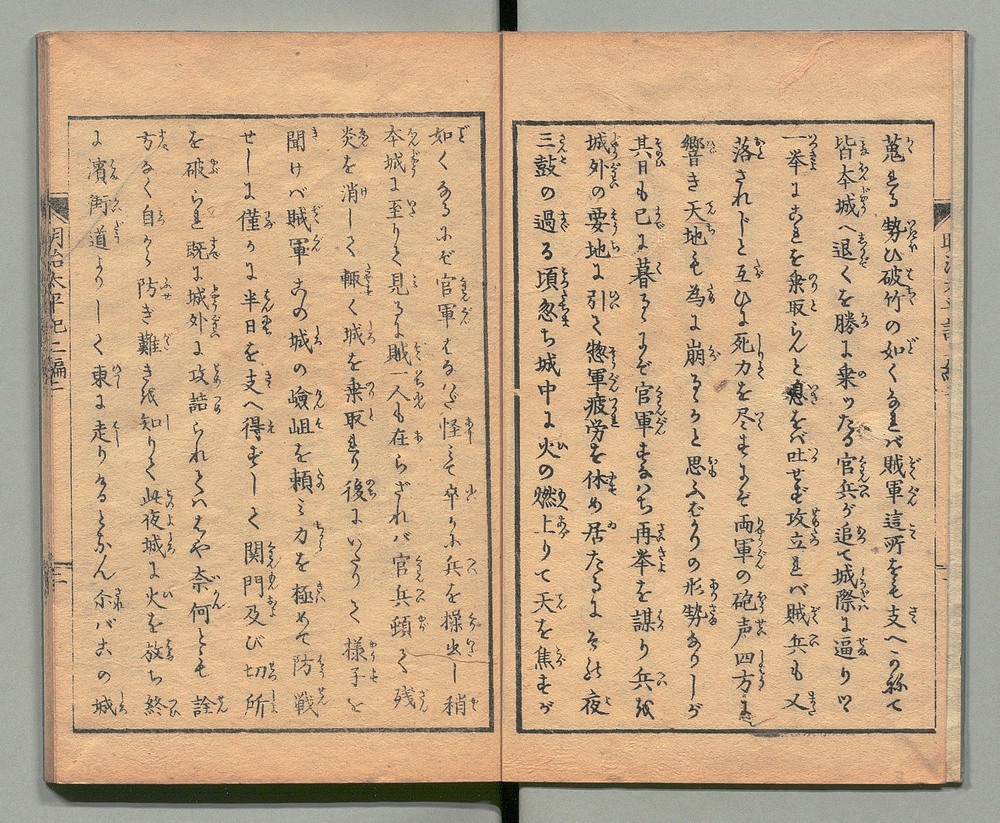 蒐まる勢ひ破竹の如くなれバ賊軍這所をも支へかねて
皆本城へ退くを勝に乗ツたる官兵が追て城際に逼りツヽ
一挙にこれを乗取らんと息をバ吐せず攻立れバ賊兵も又
落されじと互ひに死力を尽すにぞ両軍の砲声四方に
響き天地も為に崩るゝかと思ふばかりの形勢ありしが
其日も已に暮るゝにぞ官軍すなはち再挙を謀り兵を
城外の要地に引て惣軍疲労を休め居たるに其夜
三鼓の過る頃忽ち城中に火の燃上りて天を焦すが
如くなるにぞ官軍はなほ怪みて卒かに兵を操出し稍
本城に至りて見るに賊一人も在らざれバ官兵頓て残
炎を消して輙く城を乗取れり後にいたりて様子を
聞けバ賊軍この城の嶮岨を頼み力を極めて防戦
せしに僅かに半日を支へ得ずして関門及び切所
を破られ既に城外に攻詰られてハはや奈何とも詮
方なく自から防ぎ難きを知りて此夜城に火を放ち終
に濱街道よりして東に走りけるとなん尓バこの城
明治太平記二編二